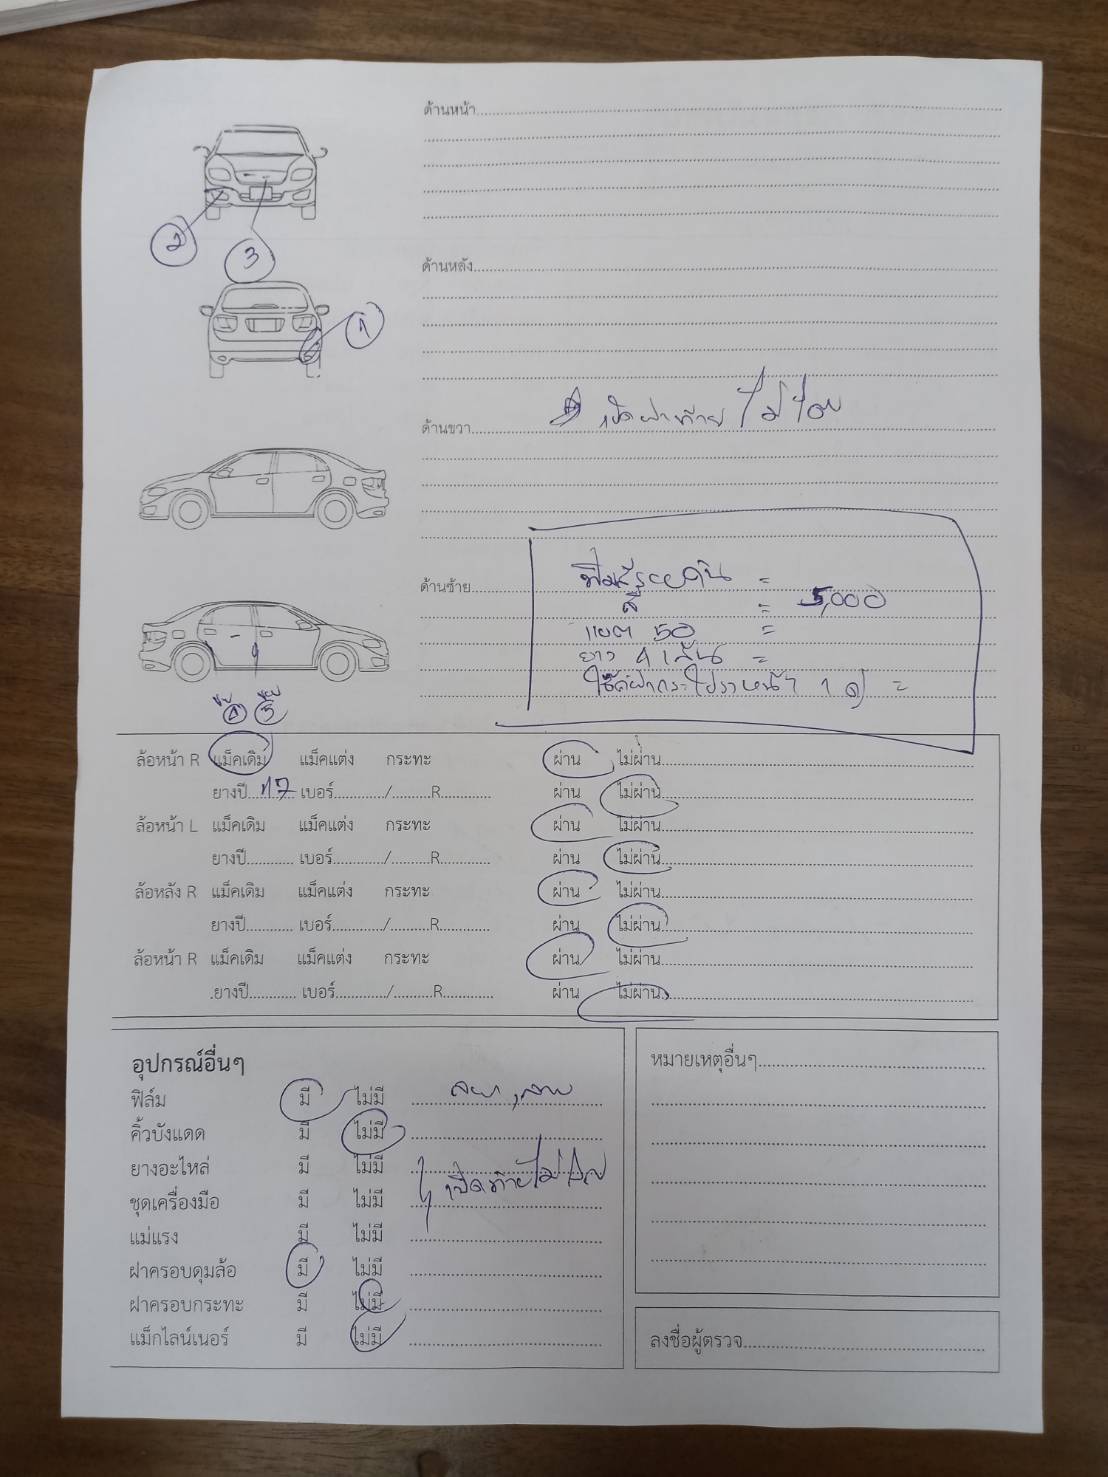 ด้านหน้า
2
3
ด้านหลัง
1
เปิดฝาท้าย ไม่ได้
ด้านขวา
ด้านซ้าย
=
สี = 5,000
50 =
ยาง 4 เส้น =
หน้า 1 =
4 5
ล้อหน้า R แม็คเดิม แม็คแต่ง กระทะ ผ่าน ไม่ผ่าน
ยางปี 17 เบอร์ / R ผ่าน ไม่ผ่าน
ล้อหน้า L แม็คเดิม แม็คแต่ง กระทะ ผ่าน ไม่ผ่าน
ยางปี เบอร์ / R ผ่าน ไม่ผ่าน
ล้อหลัง R แม็คเดิม แม็คแต่ง กระทะ ผ่าน ไม่ผ่าน
ยางปี เบอร์ / R ผ่าน ไม่ผ่าน
ล้อหน้า R แม็คเดิม แม็คแต่ง กระทะ ผ่าน ไม่ผ่าน
.ยางปี เบอร์ / R ผ่าน ไม่ผ่าน
อุปกรณ์อื่นๆ
ฟิล์ม มี ไม่มี
คิ้วบังแดด มี ไม่มี
ยางอะไหล่ มี ไม่มี
เปิดท้ายไม่ได้
ชุดเครื่องมือ มี ไม่มี
แม่แรง มี ไม่มี
ฝาครอบดุมล้อ มี ไม่มี
ฝาครอบกระทะ มี ไม่มี
แม็กไลน์เนอร์ มี ไม่มี
หมายเหตุอื่นๆ
ลงชื่อผู้ตรวจ